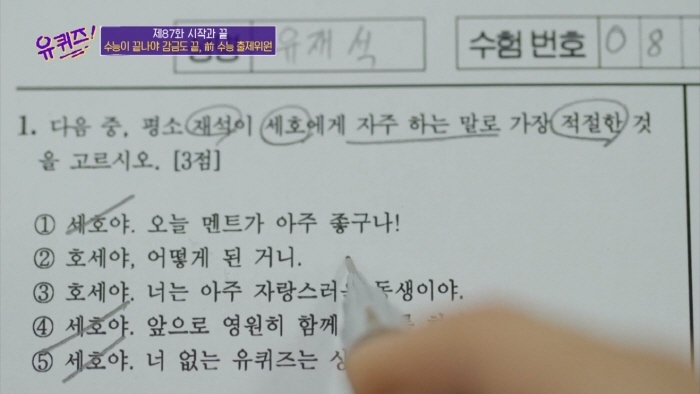 유퀴즈!
제87화 시작과 끝
수능이 끝나야 감금도 끝, 前 수능 출제위원
성명 유재석
수험 번호 0 8
1. 다음 중, 평소 재석이 세호에게 자주 하는 말로 가장 적절한 것
을 고르시오. [3점]
① 세호야. 오늘 멘트가 아주 좋구나!
② 호세야, 어떻게 된 거니.
③ 호세야. 너는 아주 자랑스러운 동생이야.
④ 세호야. 앞으로 영원히 함께
⑤ 세호야. 너 없는 유퀴즈는